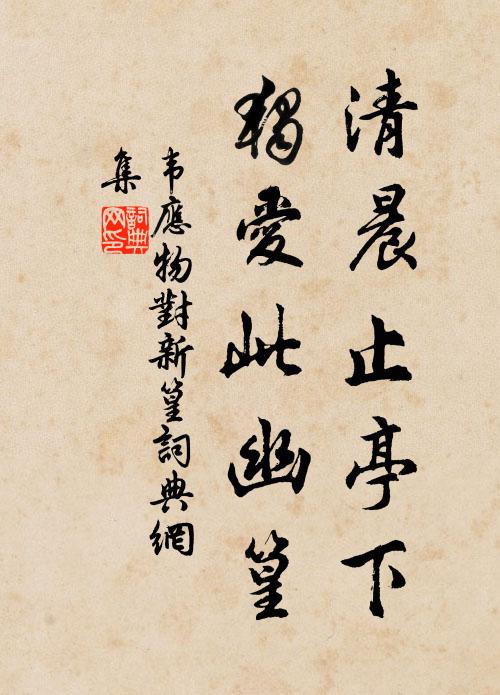 清晨止亭下
獨愛此幽篁
韦應物對新篁詞典網
集
詞典网印